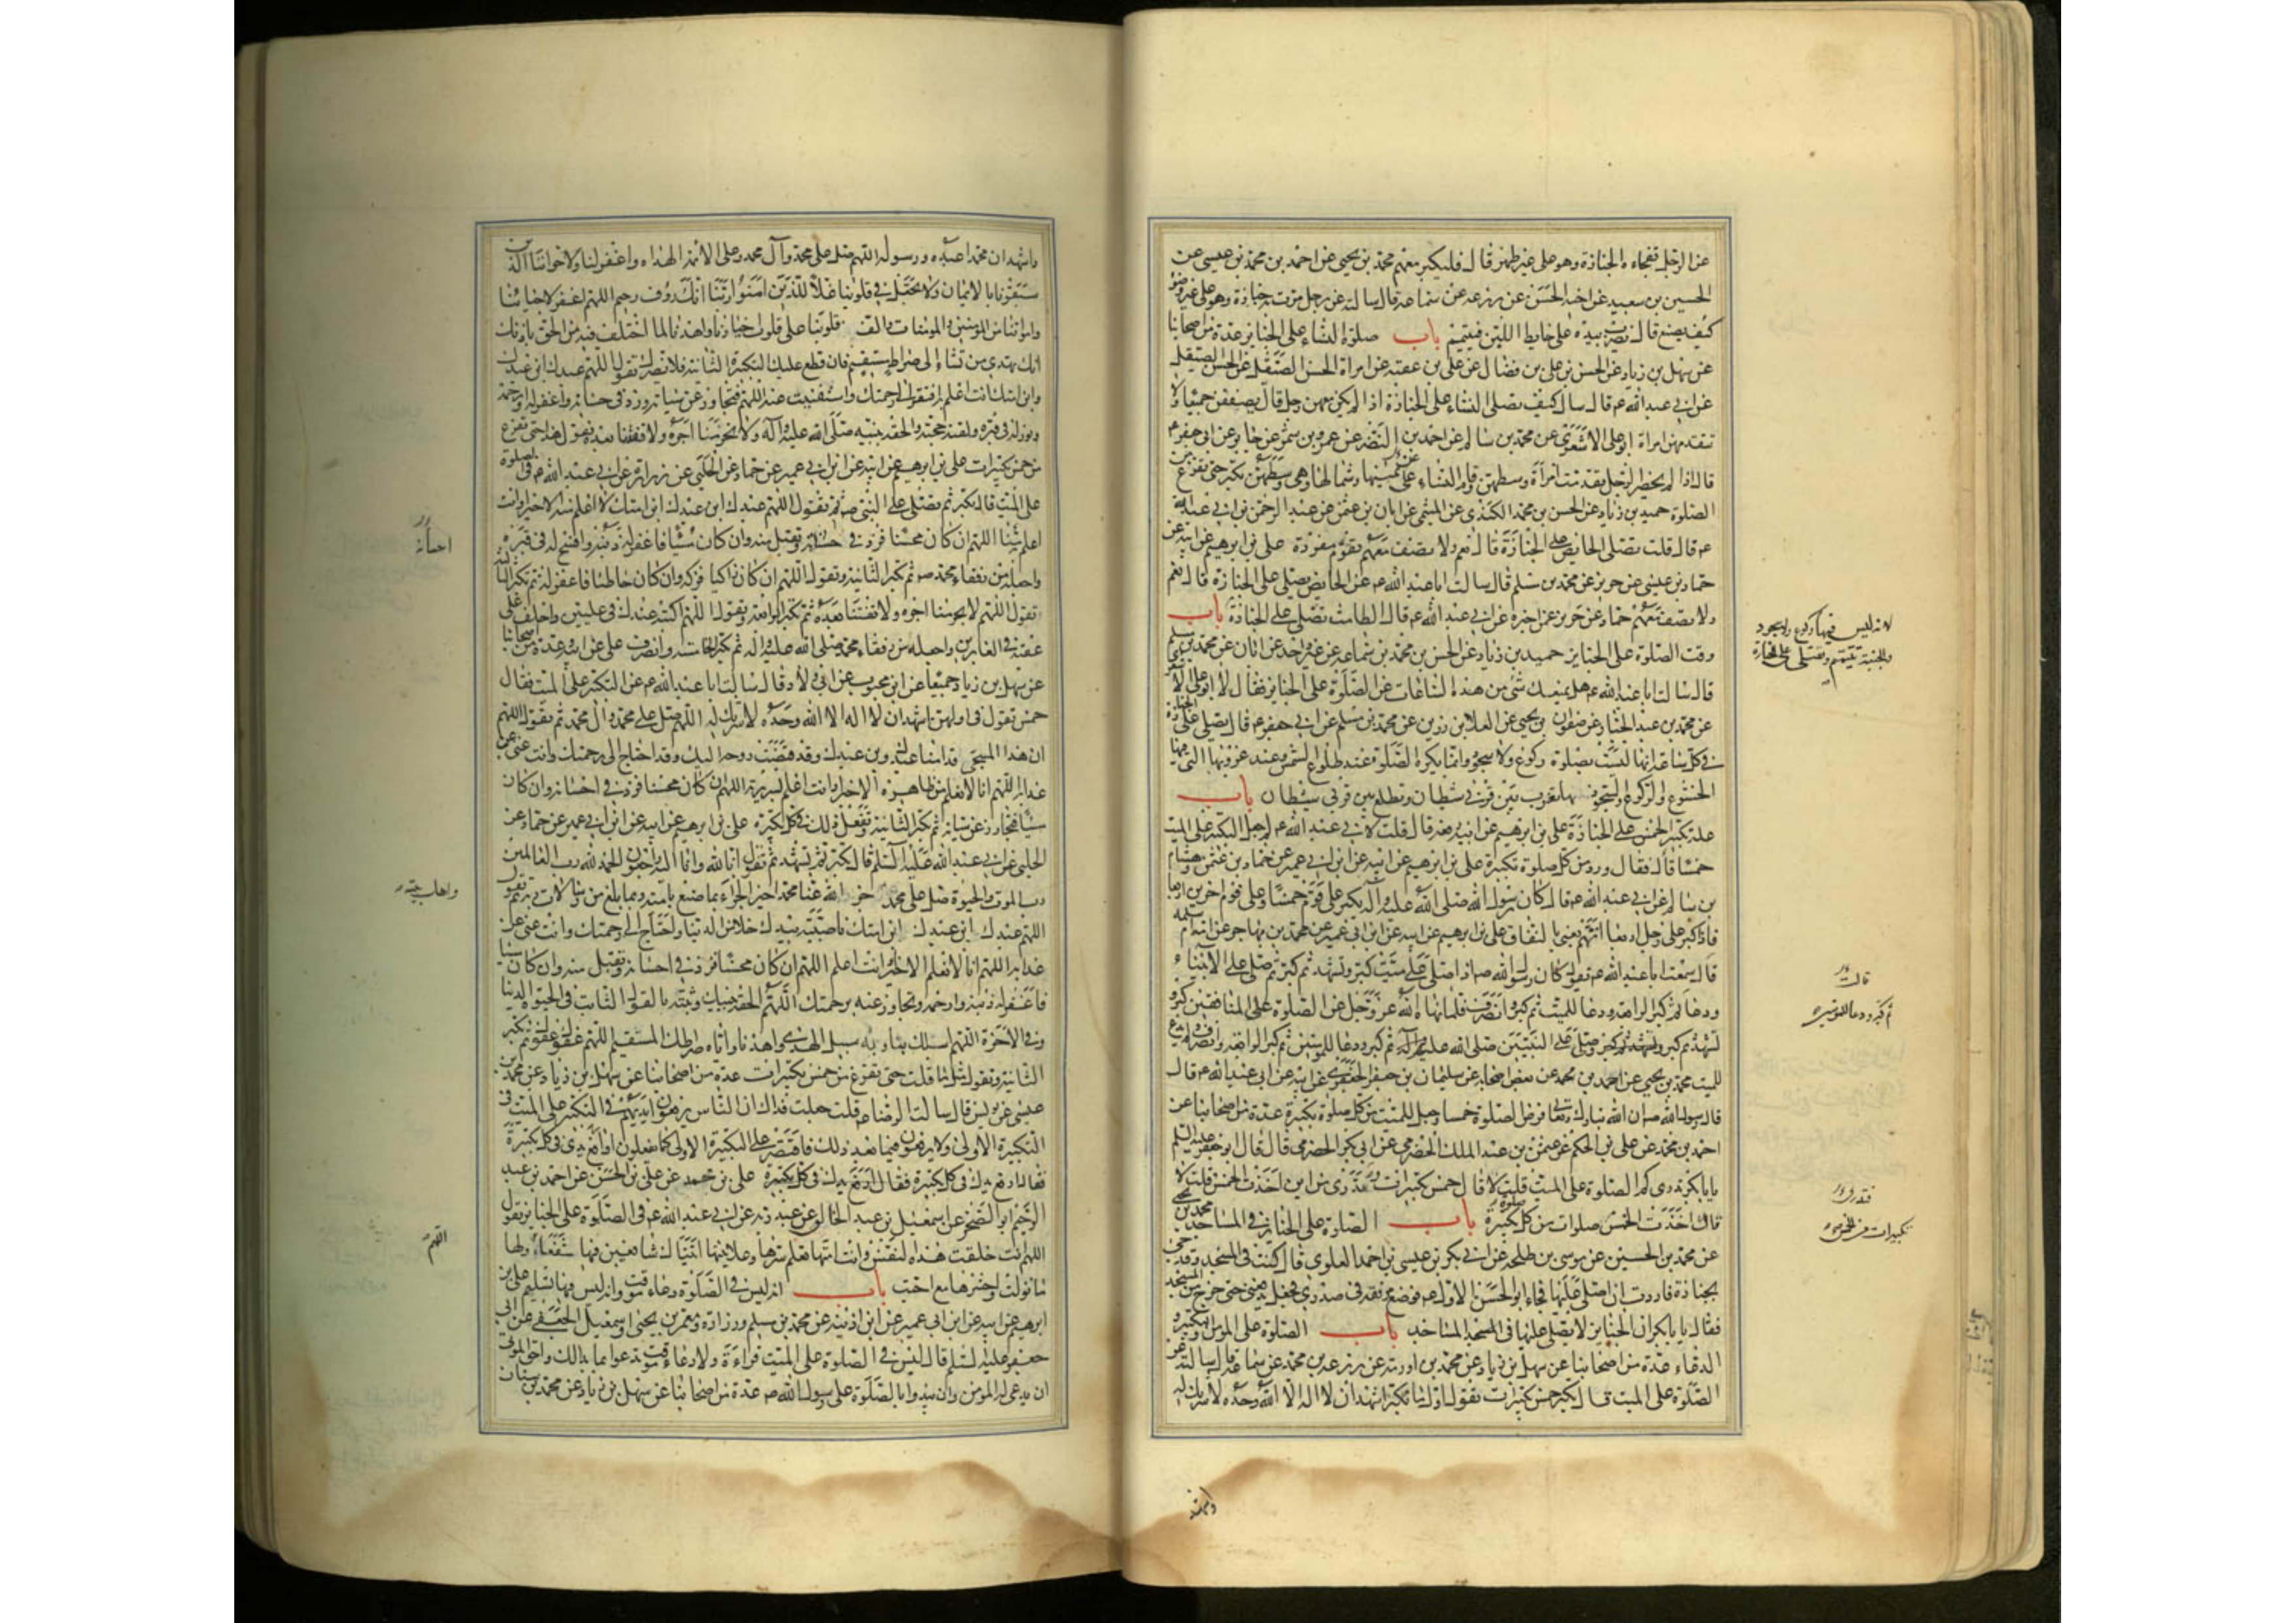 عن الرجل تفجاه الجنازة وهو على غير طهر قال فليكبر معهم محمد بن يحيى عن احمد بن محمد بن عيسى عن
الحسين بن سعيد عن اخيه الحسن عن زرعه عن سماعه قال سالته عن رجل مرت به جنازة وهو على غير وضوء
كيف يصنع قال يضرب بيده على حايط اللبن فيتيمم باب صلوة النساء على الجنايز عدة من اصحابنا
عن سهل بن زياد عن الحسن بن على بن فضال عن على بن عقبه عن امراة الحسن الصيقل عن الحسن الصيقل
عن ابي عبد الله ع قال سال كيف تصلى النساء على الجنازة اذا لم يكن معهن رجل قال يصففن جميعا ولا
تتقدمهن امراة ابو على الاشعرى عن محمد بن سالم عن احمد بن النضر عن عمرو بن شمر عن جابر عن ابى جعفر ع
قال اذا لم يحضر الرجل تقدمت امرأة وسطهن وقام النساء عن يمينها وشمالها وهى وسطهن تكبر حتى تفرغ من
الصلوة حميد بن زياد عن الحسن بن محمد الكندى عن الميثمى عن ابان بن عثمن عن عبد الرحمن بن ابى عبد الله
ع قال قلت تصلى الحايض على الجنازة قال نعم ولا تصف معهم تقوم مفردة على بن ابرهيم عن ابيه عن
حماد بن عيسى عن حريز عن محمد بن مسلم قال سالت ابا عبد الله ع عن الحايض يصلى على الجنازة قال نعم
ولا تصف معهم حماد عن حريز عمن اخبره عن ابى عبد الله ع قال الطامث تصلى على الجنازة باب
لانه ليس فيها ركوع ولا سجود
والجنبة تتيمم وتصلى على الجنازة
وقت الصلوة على الجنايز حميد بن زياد عن الحسن بن محمد بن سماعه عن غير واحد عن ابان عن محمد بن مسلم
قال سالت ابا عبد الله ع هل يمنعك شئ من هذه الساعات عن الصلوة على الجنايز فقال لا ابو على الاشعرى
عن محمد بن عبد الجبار عن صفوان بن يحيى عن العلا بن رزين عن محمد بن مسلم عن ابى جعفر ع قال يصلى على الجنازة
فى كل ساعة انها ليست بصلوة ركوع ولا سجود وانما يكره الصلوة عند طلوع الشمس وعند غروبها التى فيها
الخشوع والركوع والسجود لانها تغرب بين قرنى شيطان وتطلع بين قرنى شيطان باب
علة تكبير الخمس على الجنازة على بن ابرهيم عن ابيه رفعه قال قلت لابى عبد الله ع لم جعل التكبير على الميت
خمسا قال فقال ورد من كل صلوة تكبيرة على بن ابرهيم عن ابيه عن ابن ابى عمير عن حماد بن عثمن وهشام
بن سالم عن ابى عبد الله ع قال كان رسول الله صلى الله عليه وآله يكبر على قوم خمسا وعلى قوم اخرين اربعا
فاذا كبر على رجل اربعا اتهم يعنى بالنفاق على بن ابرهيم عن ابيه عن ابن ابى عمير عن محمد بن مهاجر عن امه ام سلمه
قالت
قال سمعت ابا عبد الله ع تقول كان رسول الله ص اذا صلى على ميت كبر وتشهد ثم كبر ثم صلى على الانبياء
ثم كبر ودعا للمؤمنين
ودعا ثم كبر الرابعة ودعا للميت ثم كبر وانصرف فلما نهاه الله عز وجل عن الصلوة على المنافقين كبر و
تشهد ثم كبر وصلى على النبيين صلى الله عليهم ثم كبر ودعا للمومنين ثم كبر الرابعة وانصرف ولم يدع
للميت محمد بن يحيى عن احمد بن محمد عن بعض اصحابه عن سليمان بن جعفر الجعفرى عن ابيه عن ابى عبد الله ع قال
قال رسول الله ص ان الله تبارك وتعالى فرض الصلوة خمسا وجعل للميت من كل صلوة تكبيرة عدة من اصحابنا عن
احمد بن محمد عن على بن الحكم عن عثمن بن عبد الملك الحضرمى عن ابى بكر الحضرمى قال قال ابو جعفر عليه السلم
يا با بكر تدرى كم الصلوة على الميت قلت لا قال خمس تكبيرات وتدرى من اين اخذت الخمس قلت لا
قال اخذت الخمس صلوات من كل صلوة تكبيرة باب الصلوة على الجنايز فى المساجد محمد بن يحيى
تكبيرات من الخمس
عن محمد بن الحسين عن موسى بن طلحه عن ابى بكر بن عيسى بن احمد العلوى قال كنت فى المسجد وقد جئ
بجنازة فاردت ان اصلى عليها فجاء ابو الحسن الاول ع فوضع مرفقه فى صدرى فجعل يدفعنى حتى خرج من المسجد
فقال يا با بكر ان الجنايز لا يصلى عليها فى المسجد باب الصلوة على المومن والتكبير و
الدعاء عدة من اصحابنا عن سهل بن زياد عن محمد بن اورمه عن زرعه بن محمد عن سماعه قال سالته عن
الصلوة على الميت قال يكبر خمس تكبيرات تقول اول ما تكبر اشهد ان لا اله الا الله وحده لا شريك له
واشهد
واشهد ان محمدا عبده ورسوله اللهم صل على محمد وآل محمد وعلى الائمة الهداه واغفر لنا ولاخواننا الذين
سبقونا بالايمان ولا تجعل فى قلوبنا غلا للذين آمنوا ربنا انك رؤف رحيم اللهم اغفر لاحيائنا
وامواتنا من المومنين والمومنات والف قلوبنا على قلوب خيارنا واهدنا لما اختلف فيه من الحق باذنك
انك تهدى من تشاء الى صراط مستقيم فان قطع عليك التكبيرة الثانية فلا تضرك تقول اللهم عبدك ابن عبدك
وابن امتك انت اعلم به افتقر الى رحمتك واستغنيت عنه اللهم فتجاوز عن سيئاته وزد فى حسناته واغفر له وارحمه
ونور له فى قبره ولقنه حجته والحقه بنبيه صلى الله عليه وآله ولا تحرمنا اجره ولا تفتنا بعده تقول هذا حتى تفرغ
من خمس تكبيرات على بن ابرهيم عن ابيه عن ابن ابى عمير عن حماد عن الحلبى عن زرارة عن ابى عبد الله ع فى الصلوة
على الميت قال تكبر ثم تصلى على النبى ص ثم تقول اللهم عبدك ابن عبدك ابن امتك لا اعلم منه الا خيرا وانت
اعلم به منا اللهم ان كان محسنا فزد فى حسناته وتقبل منه وان كان مسيئا فاغفر له ذنبه وافسح له فى قبره
احسانه
واجعله من رفقاء محمد ص ثم تكبر الثانية وتقول اللهم ان كان زاكيا فزكه وان كان خاطئا فاغفر له ثم تكبر الثالثة
وتقول اللهم لا تحرمنا اجره ولا تفتنا بعده ثم تكبر الرابعة وتقول اللهم اكتبه عندك فى عليين واخلف على
عقبه فى الغابرين واجعله من رفقاء محمد صلى الله عليه واله ثم تكبر الخامسة وانصرف على عن ابيه وعدة من اصحابنا
عن سهل بن زياد جميعا عن ابن محبوب عن ابى ولاد قال سالت ابا عبد الله ع عن التكبير على الميت فقال
خمس تقول فى اولهن اشهد ان لا اله الا الله وحده لا شريك له اللهم صل على محمد وآل محمد ثم تقول اللهم
ان هذا المسجى قدامنا عبدك وبن عبدك وقد قبضت روحه اليك وقد احتاج الى رحمتك وانت غنى عن
عذابه اللهم انا لا نعلم من ظاهره الا خيرا وانت اعلم بسريرته اللهم ان كان محسنا فزد فى احسانه وان كان
مسيئا فتجاوز عن سيئاته ثم تكبر الثانية وتفعل ذلك فى كل تكبيرة على بن ابرهيم عن ابيه عن ابن ابى عمير عن حماد عن
الحلبى عن ابى عبد الله عليه السلم قال تكبر ثم تشهد ثم تقول انا لله وانا اليه راجعون الحمد لله رب العالمين
رب الموت والحيوة صل على محمد واهل بيته جزى الله عنا محمدا خير الجزاء بما صنع بامته وبما بلغ من رسالات ربه ثم تقول
اللهم عبدك ابن عبدك ابن امتك ناصيته بيدك خلا من الدنيا واحتاج الى رحمتك وانت غنى عن
عذابه اللهم انا لا نعلم الا خيرا وانت اعلم اللهم ان كان محسنا فزد فى احسانه وتقبل منه وان كان مسيئا
فاغفر له ذنبه وارحمه وتجاوز عنه برحمتك اللهم الحقه بنبيك وثبته بالقول الثابت فى الحيوة الدنيا
وفى الاخرة اللهم اسلك بنا وبه سبيل الهدى واهدنا واياه صراطك المستقيم اللهم عفوك عفوك ثم تكبر
الثانية وتقول مثل ما قلت حتى تفرغ من خمس تكبيرات عدة من اصحابنا عن سهل بن زياد عن محمد بن
عيسى عن يونس قال سالت الرضا ع قلت جعلت فداك ان الناس يرفعون ايديهم فى التكبير على الميت فى
التكبيرة الاولى ولا يرفعون فيما بعد ذلك فاقتصر على التكبيرة الاولى كما يفعلون او ارفع يدى فى كل تكبيرة
فقال ارفع يدك فى كل تكبيرة على بن محمد عن على بن الحسن عن احمد بن عبد
الرحيم ابو الصخر عن اسمعيل بن عبد الخالق عن عبد ربه عن ابى عبد الله ع فى الصلوة على الجنايز تقول
اللهم
اللهم انت خلقت هذه النفس وانت امتها تعلم سرها وعلانيتها اتيناك شافعين فيها شفعاء ولها
ما تولت واحشرها مع احبت باب انه ليس فى الصلوة دعاء موقت وانه ليس فيها تسليم على بن
ابرهيم عن ابيه عن ابن ابى عمير عن ابن اذينه عن محمد بن مسلم وزرارة ومعمر بن يحيى واسمعيل الجعفى عن ابى
جعفر عليه السلم قال ليس فى الصلوة على الميت قراءة ولا دعاء موقت تدعوا بما بدا لك واحق الموتى
ان يدعى له المومن وان يبدوا بالصلوة على رسول الله ص عدة من اصحابنا عن سهل بن زياد عن محمد بن سنان